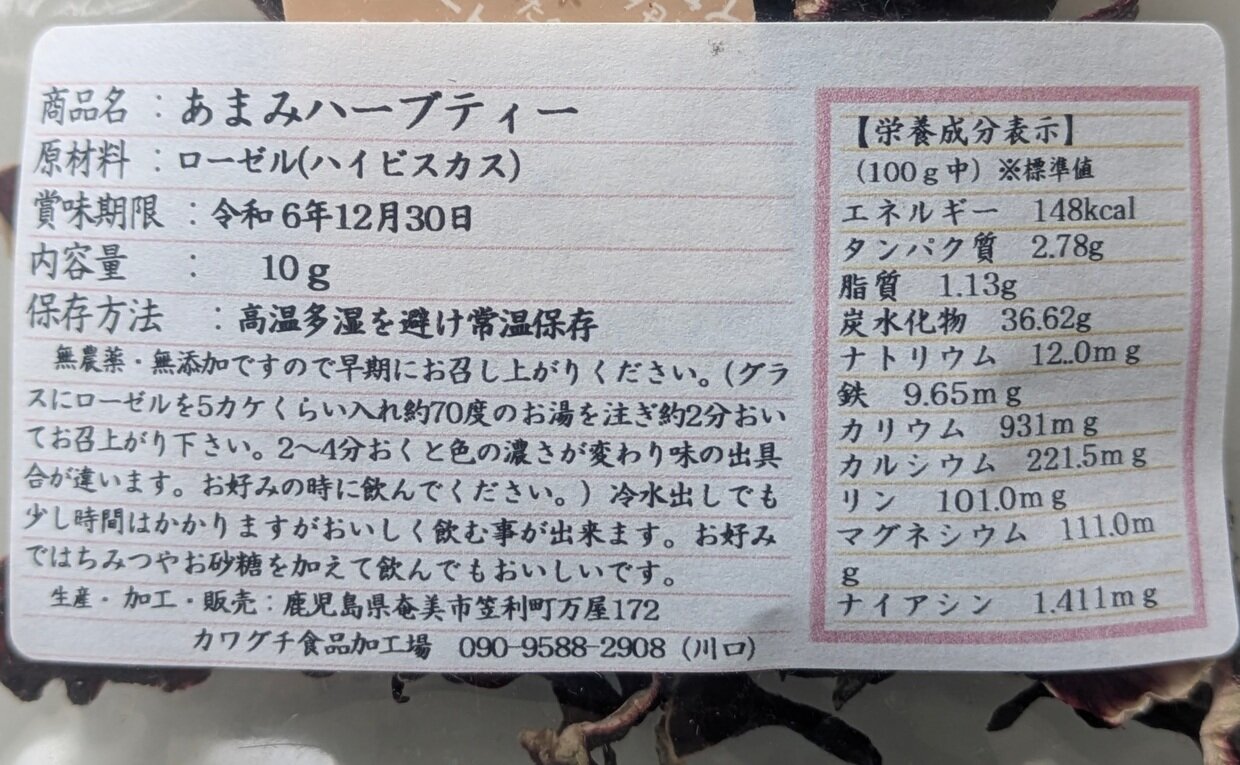 商品名：あまみハーブティー
原材料：ローゼル(ハイビスカス)
賞味期限：令和6年12月30日
内容量　：　10ｇ
保存方法　：高温多湿を避け常温保存
無農薬・無添加ですので早期にお召し上がりください。(グラ
スにローゼルを5カケくらい入れ約70度のお湯を注ぎ約2分おい
てお召上がり下さい。2～4分おくと色の濃さが変わり味の出具
合が違います。お好みの時に飲んでください。) 冷水出しでも
少し時間はかかりますがおいしく飲む事が出来ます。お好み
ではちみつやお砂糖を加えて飲んでもおいしいです。
生産・加工・販売：鹿児島県奄美市笠利町万屋172
カワグチ食品加工場　090-9588-2908（川口）
【栄養成分表示】
（100ｇ中）※標準値
エネルギー　148kcal
タンパク質　2.78g
脂質　1.13g
炭水化物　36.62g
ナトリウム　12..0mｇ
鉄　9.65mｇ
カリウム　931mｇ
カルシウム　221.5mｇ
リン　101.0mｇ
マグネシウム　111.0m
ｇ
ナイアシン　1.411mｇ